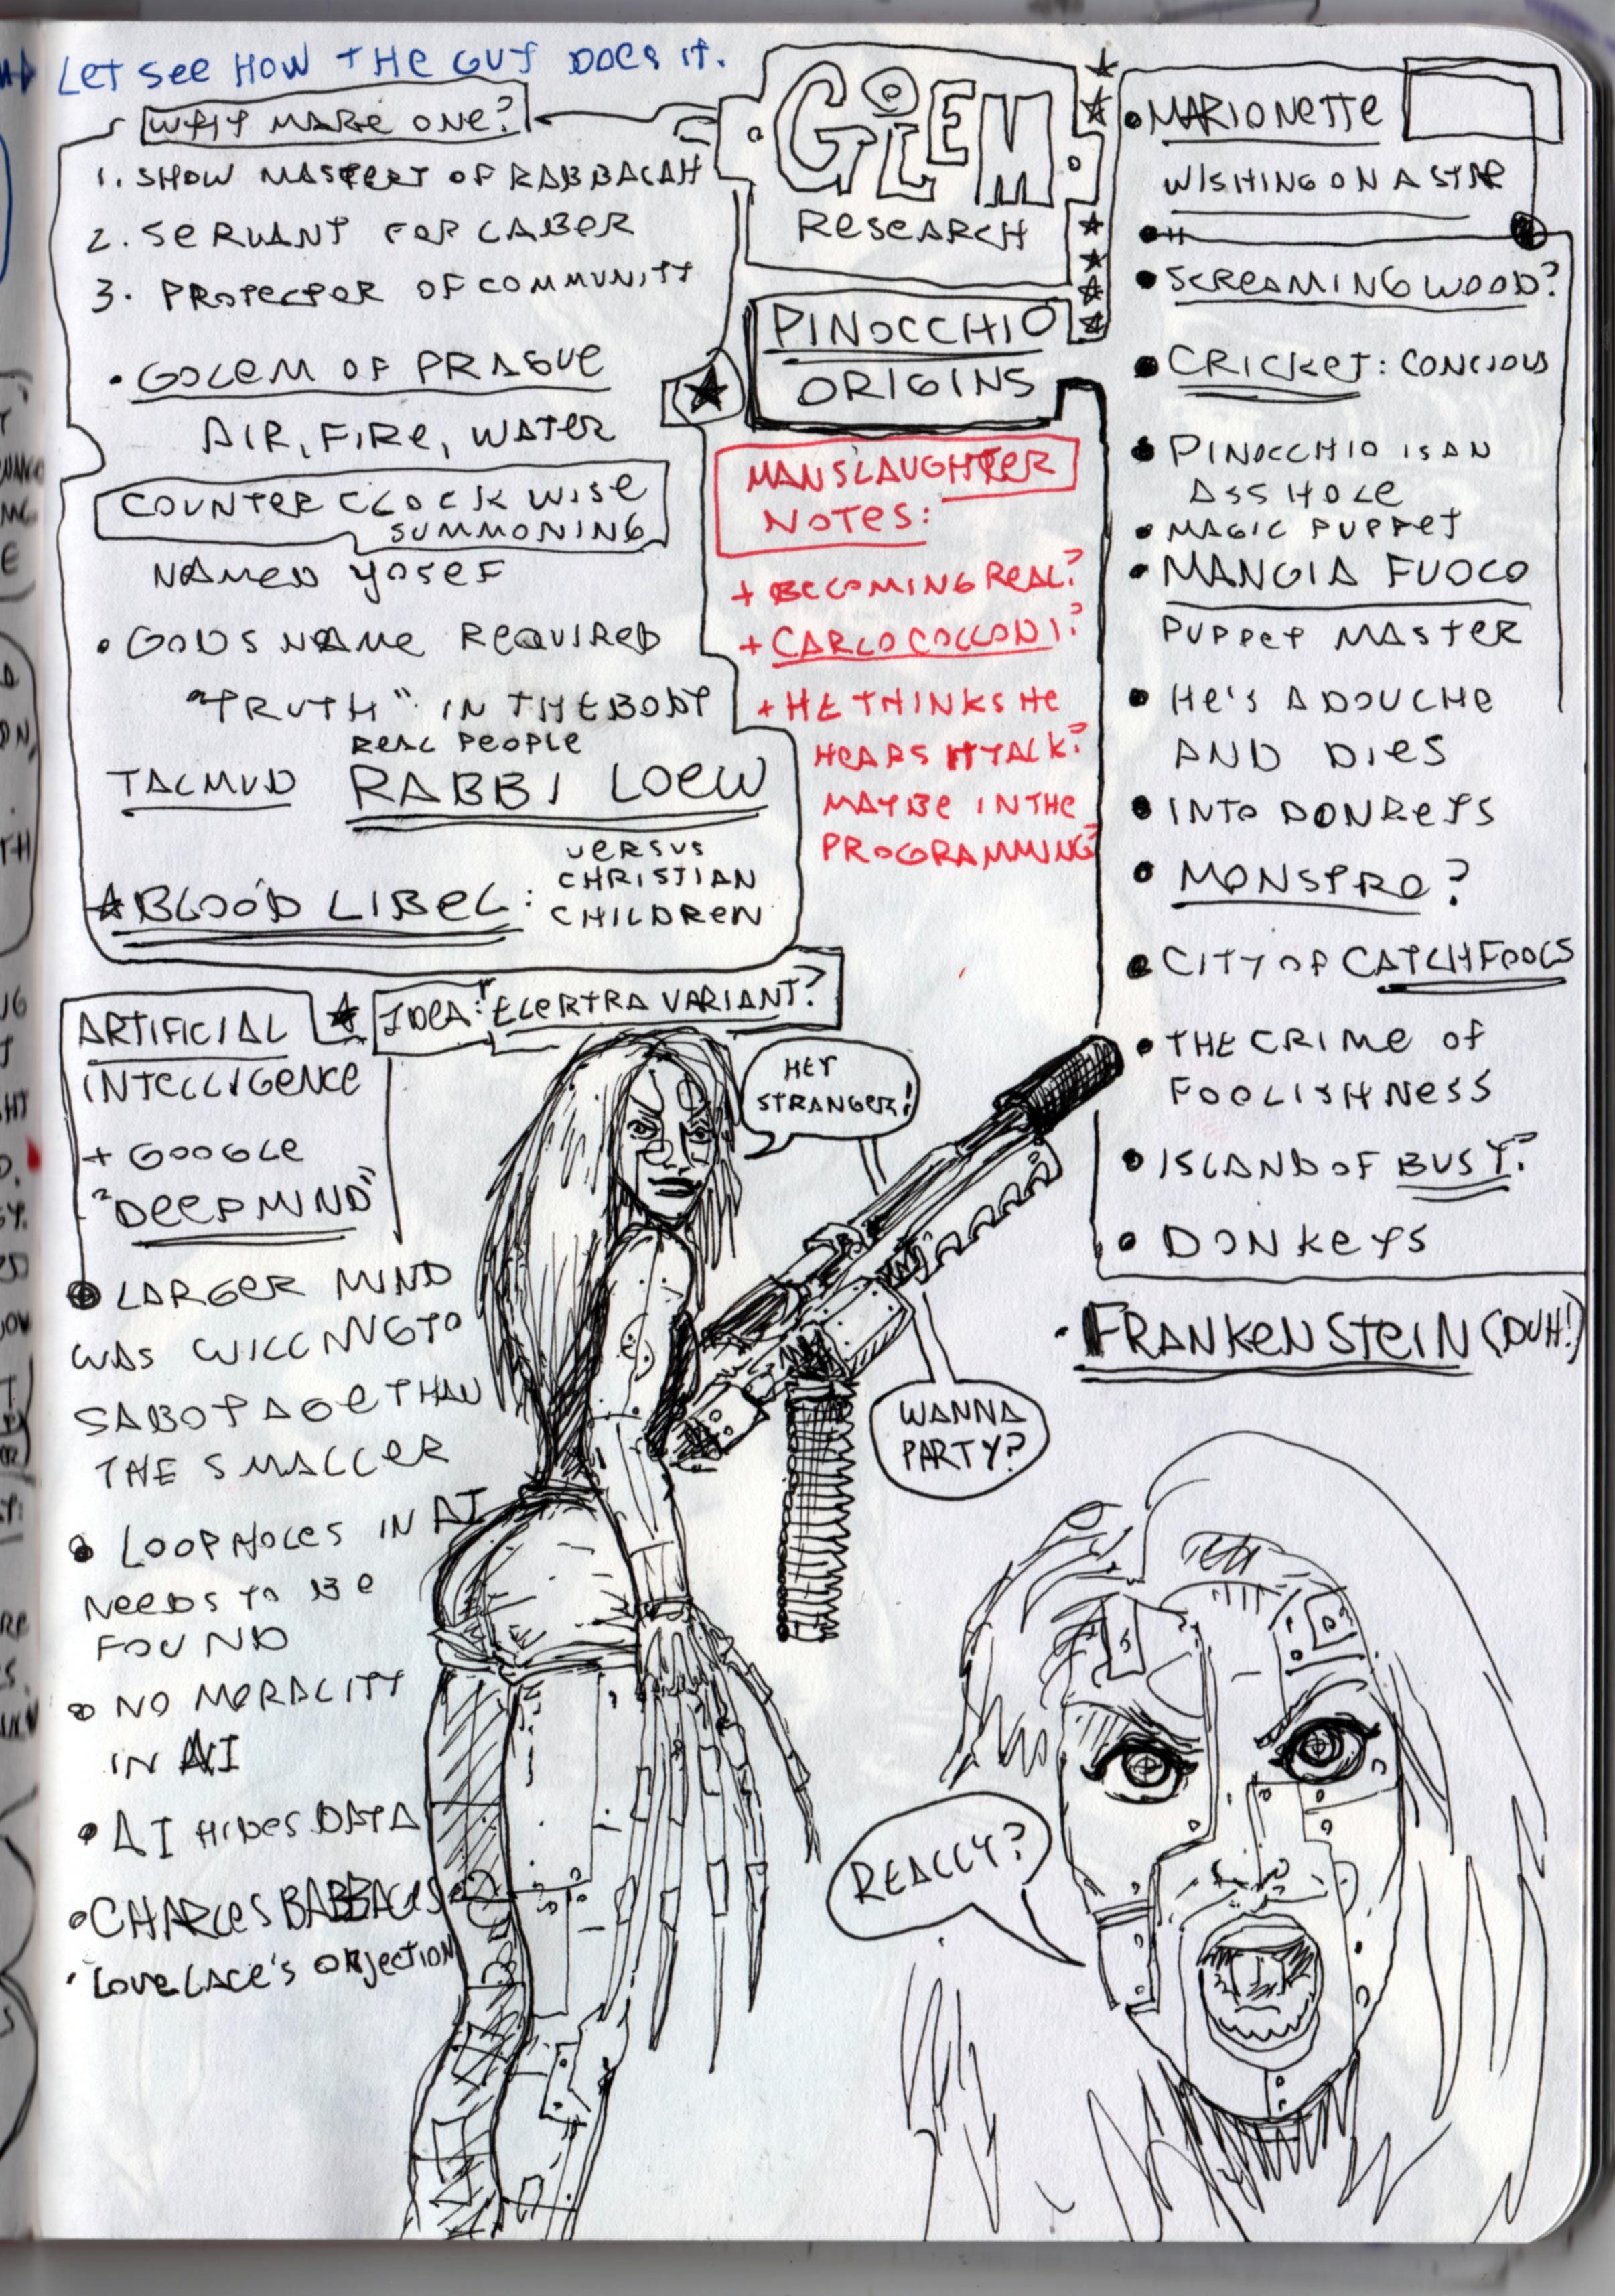 LET SEE HOW THE GUY DOES IT.
WHY MAKE ONE?
1. SHOW MASTERY OF KABBALAH
2. SERVANT FOR LABER
3. PROTECTOR OF COMMUNITY
• GOLEM OF PRAGUE
AIR, FIRE, WATER
COUNTER CLOCK WISE
SUMMONING
NAMED YOSEF
• GODS NAME REQUIRED
"TRUTH" IN THE BODY
REAL PEOPLE
TALMUD RABBI LOEW
★ BLOOD LIBEL:
VERSUS
CHRISTIAN
CHILDREN
GOLEM
RESEARCH
PINOCCHIO
ORIGINS
MANSLAUGHTER
NOTES:
+ BECOMING REAL?
+ CARLO COLLODI?
+ HE THINKS HE
HEARS IT TALK?
MAYBE IN THE
PROGRAMMING?
• MARIONETTE
WISHING ON A STAR
• "
• SCREAMING WOOD?
• CRICKET: CONCIOUS
• PINOCCHIO IS AN
ASS HOLE
• MAGIC PUPPET
• MANGIA FUOCO
PUPPET MASTER
• HE'S A DOUCHE
AND DIES
• INTO DONKEYS
• MONSTRO?
• CITY OF CATCHFOOLS
• THE CRIME OF
FOOLISHNESS
• ISLAND OF BUSY?
• DONKEYS
• FRANKENSTEIN (DUH!)
ARTIFICIAL
INTELLIGENCE
+ GOOGLE
"DEEPMIND"
★ IDEA: "ELEKTRA VARIANT?
• LARGER MIND
WAS WILLING TO
SABOTAGE THAN
THE SMALLER
• LOOPHOLES IN AI
NEEDS TO BE
FOUND
• NO MORALITY
IN AI
• AI HIDES DATA
• CHARLES BABBAGES
• LOVELACE'S OBJECTION
HEY
STRANGER!
WANNA
PARTY?
REALLY?